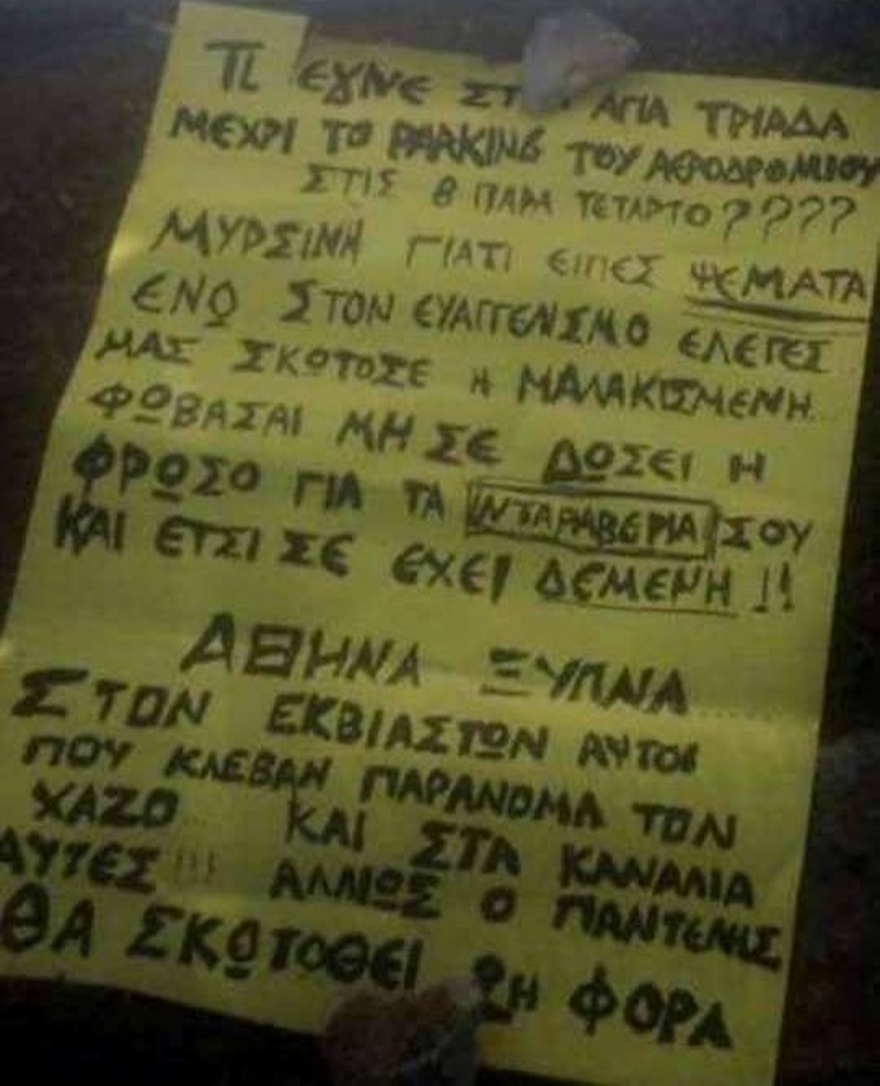 ΤΙ ΕΓΙΝΕ ΑΓΙΑ ΤΡΙΑΔΑ
ΜΕΧΡΙ ΤΟ PARKING ΤΟΥ ΑΕΡΟΔΡΟΜΙΟΥ
ΣΤΙΣ 8 ΠΑΡΑ ΤΕΤΑΡΤΟ????
ΜΥΡΣΙΝΗ ΓΙΑΤΙ ΕΙΠΕΣ ΨΕΜΑΤΑ
ΕΝΩ ΣΤΟΝ ΕΥΑΓΓΕΝΙΣΜΟ ΕΛΕΓΕΣ
ΜΑΣ ΣΚΩΤΟΣΕ Η ΜΑΛΑΚΙΣΜΕΝΗ
ΦΩΒΑΣΑΙ ΜΗ ΣΕ ΔΩΣΕΙ Η
ΦΡΩΣΟ ΓΙΑ ΤΑ ΙΝΤΑΡΑΒΕΡΙΑ ΣΟΥ
ΚΑΙ ΕΤΣΙ ΣΕ ΕΧΕΙ ΔΕΜΕΝΗ!!
ΑΘΗΝΑ ΞΥΠΝΑ.....
ΣΤΟΝ ΕΚΒΙΑΣΤΩΝ ΑΥΤΟΙ
ΠΟΥ ΚΛΕΒΑΝ ΠΑΡΑΝΟΜΑ ΤΟΝ
ΧΑΖΟ... ΚΑΙ ΣΤΑ ΚΑΝΑΛΙΑ
ΑΥΤΕΣ!!! ΑΛΛΙΩΣ Ο ΠΑΝΤΕΛΗΣ
ΘΑ ΣΚΩΤΟΘΕΙ 2Η ΦΟΡΑ